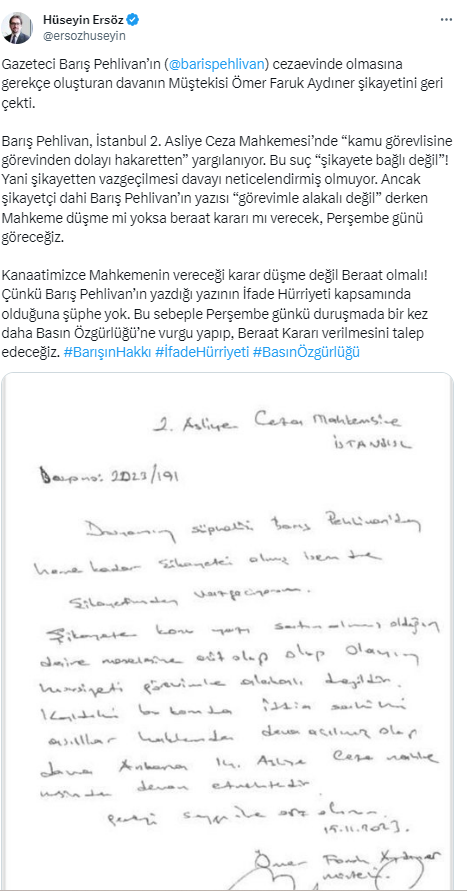 Hüseyin Ersöz
@ersozhuseyin
Gazeteci Barış Pehlivan’ın (@barispehlivan) cezaevinde olmasına
gerekçe oluşturan davanın Müştekisi Ömer Faruk Aydıner şikayetini geri
çekti.
Barış Pehlivan, İstanbul 2. Asliye Ceza Mahkemesi’nde “kamu görevlisine
görevinden dolayı hakaretten” yargılanıyor. Bu suç “şikayete bağlı değil”!
Yani şikayetten vazgeçilmesi davayı neticelendirmiş olmuyor. Ancak
şikayetçi dahi Barış Pehlivan’ın yazısı “görevimle alakalı değil” derken
Mahkeme düşme mi yoksa beraat kararı mı verecek, Perşembe günü
göreceğiz.
Kanaatimizce Mahkemenin vereceği karar düşme değil Beraat olmalı!
Çünkü Barış Pehlivan’ın yazdığı yazının İfade Hürriyeti kapsamında
olduğuna şüphe yok. Bu sebeple Perşembe günkü duruşmada bir kez
daha Basın Özgürlüğü’ne vurgu yapıp, Beraat Kararı verilmesini talep
edeceğiz. #BarışınHakkı #İfadeHürriyeti #BasınÖzgürlüğü
2. Asliye Ceza Mahkemesine
İSTANBUL
Dosya no: 2023/191
Davanın şüphelisi Barış Pehlivan'dan
kadar şikayetçi
şikayetimden vazgeçiyorum.
Şikayete konu yazı satın almış olduğum
daire meselesine ait olup olup olayın
görevimle alakalı değildir.
Kaldıki bu konuda
hakkında dava açılmış olup
dava Ankara 14. Asliye Ceza mahke
mesinde devam etmektedir.
saygı ile arz olunur.
15.11.2023.
Ömer Faruk Aydıner